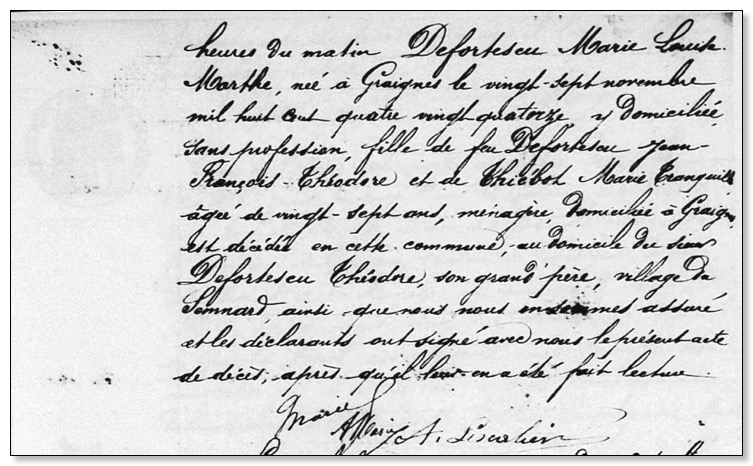 heures du matin Defortescu Marie Louise
Marthe, née à Graignes le vingt-sept novembre
mil huit cent quatre vingt quatorze y domiciliée
sans profession, fille de feu Defortescu Jean-
François-Théodore et de Thiébot Marie Tranquille
âgée de vingt-sept ans, ménagère, domiciliée à Graignes
est décédée en cette commune, au domicile du sieur
Defortescu Théodore, son grand'père, village du
ainsi que nous nous en sommes assuré
et les déclarants ont signé avec nous le présent acte
de décès, après qu'il leur en a été fait lecture.